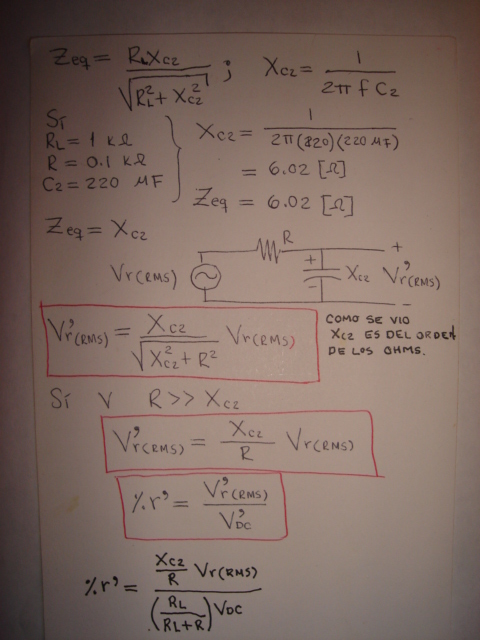 Zeq = RL XC2 / √(RL² + XC2²) ; XC2 = 1 / 2π f C2
Sí
RL = 1 kΩ
R = 0.1 kΩ
C2 = 220 μF
XC2 = 1 / 2π(120)(220 μF)
= 6.02 [Ω]
Zeq = 6.02 [Ω]
Zeq = XC2
R
Vr(RMS)
+
-
XC2
+
V'r(RMS)
-
V'r(RMS) = XC2 / √(XC2² + R²) Vr(RMS)
COMO SE VIO
XC2 ES DEL ORDEN
DE LOS OHMS.
Sí V R >> XC2
V'r(RMS) = XC2 / R Vr(RMS)
%r' = V'r(RMS) / V'DC
%r' = XC2/R Vr(RMS) / (RL / RL+R) VDC